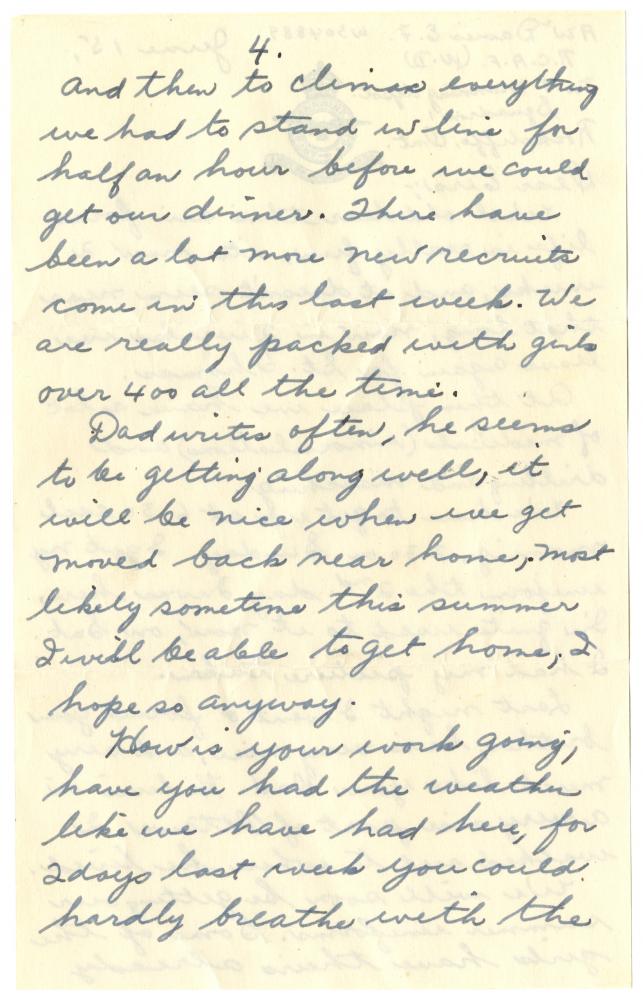 4.
And then to climax everything
we had to stand in line for
half an hour before we could
get our dinner. There have
been a lot more new recruits
come in this last week. We
are really packed with girls
over 400 all the time.
Dad writes often, he seems
to be getting along well, it
will be nice when we get
moved back near home, most
likely sometime this summer
I will be able to get home, I
hope so anyway.
How is your work going,
have you had the weather
like we have had here, for
2 days last week you could
hardly breathe with the